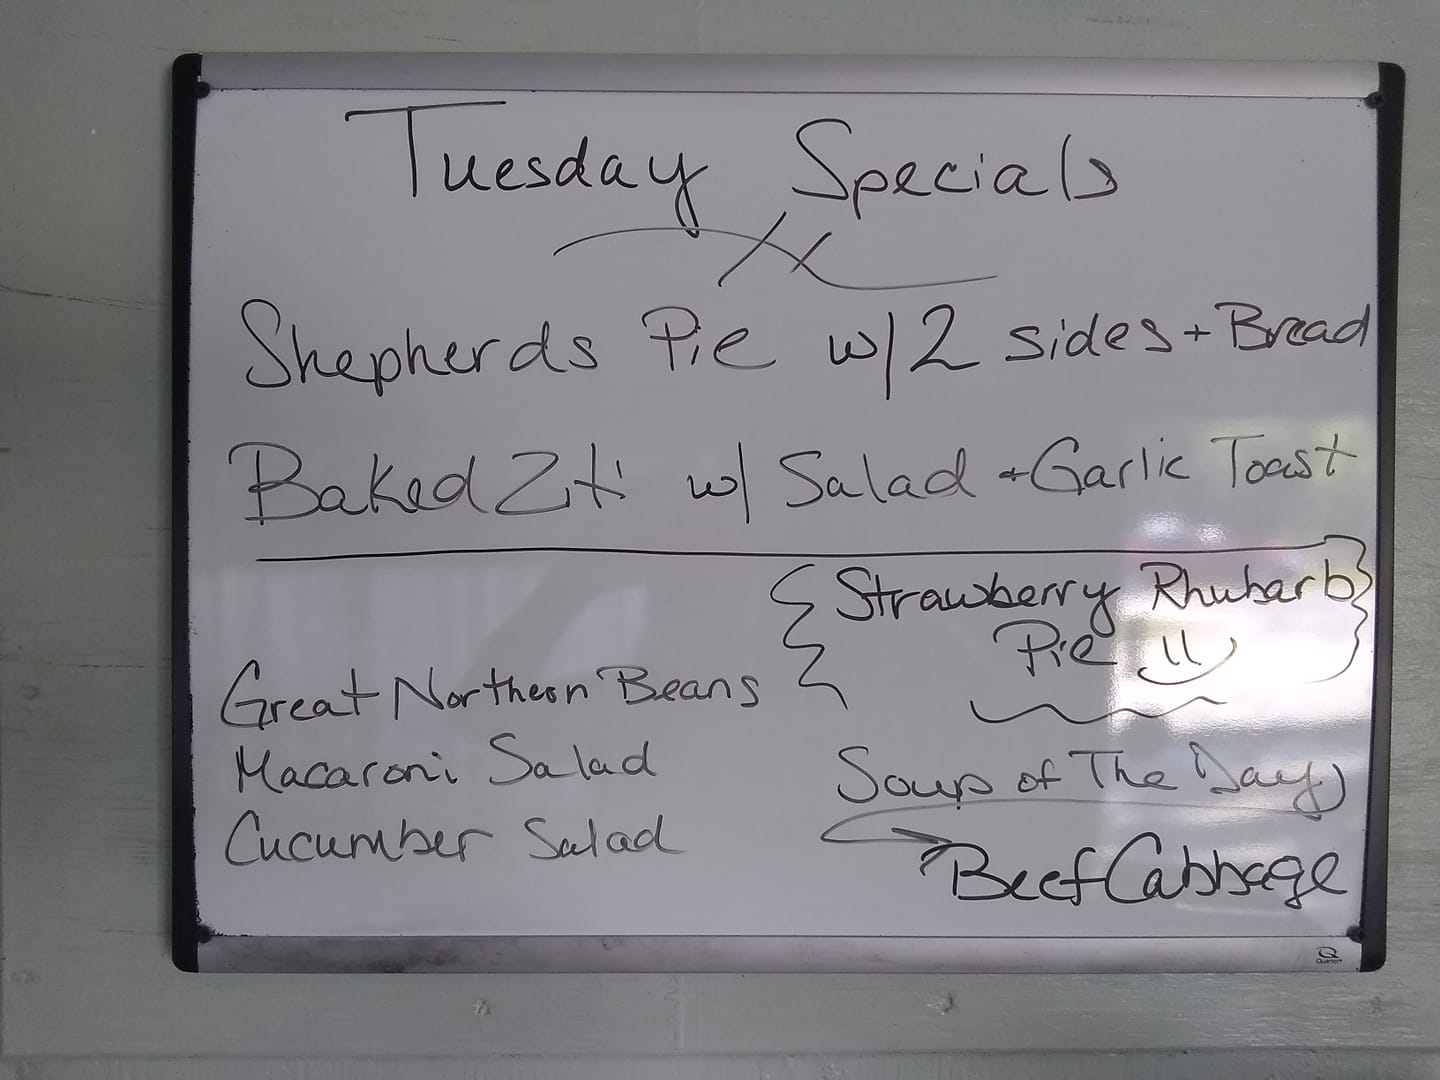 Tuesday Specials
Shepherds Pie w/ 2 sides + Bread
Baked Ziti w/ Salad + Garlic Toast
Strawberry Rhubarb
Pie
Great Northern Beans
Macaroni Salad
Cucumber Salad
Soup of The Day
Beef Cabbage
Quartet